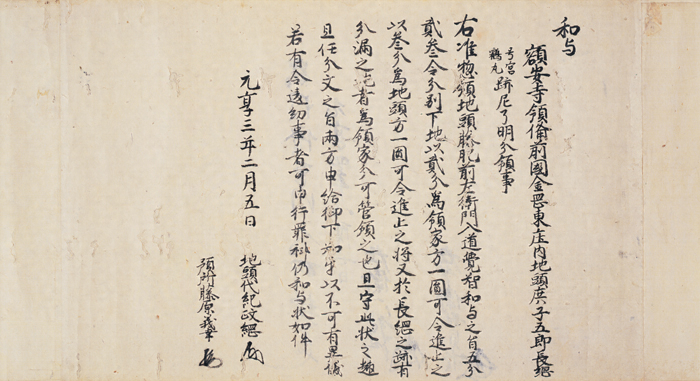 和与
額安寺領備前國金岡東庄内地頭庶子五郎長綱
号宮
鶴丸 跡尼了明分領事
右准惣領地頭藤肥前左衛門入道覚智和与之旨五分
貳叁令分別下地以貳分為領家方一圓可令進止之
以叁分為地頭方一圓可令進止之将又於長綱之跡有
分漏之地者為領家分可管領之也且守此状之趣
且任分文之旨両方申給御下知等以不可有異儀
若有令違犯事者可申行罪科仍和与状如件
元亨三年二月五日 地頭代紀政綱
預所藤原